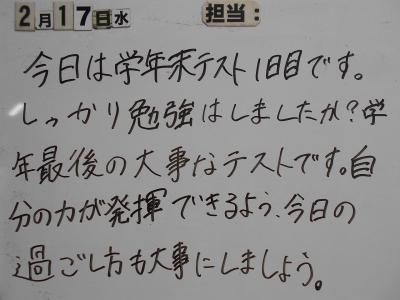 2月17日水 担当:
今日は学年末テスト1日目です。
しっかり勉強はしましたか?学
年最後の大事なテストです。自
分の力が発揮できるよう、今日の
過ごし方も大事にしましょう。